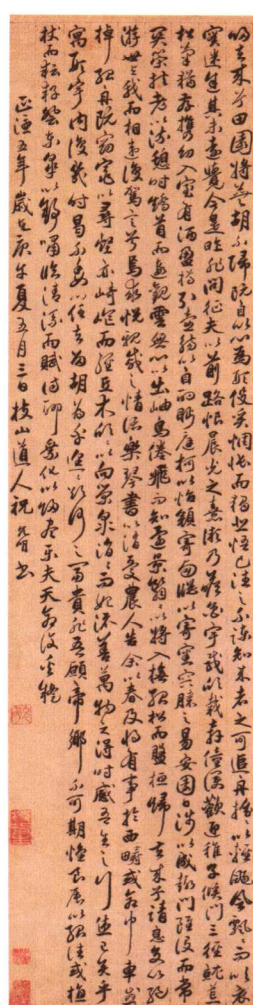 歸去來兮田園將蕪胡不歸既自以心為形役奚惆悵而獨悲悟已往之不諫知來者之可追舟搖搖以輕颺風飄飄而吹衣
實迷途其未遠覺今是昨非問征夫以前路恨晨光之熹微乃瞻衡宇載欣載奔僮僕歡迎稚子候門三徑就荒
松菊猶存攜幼入室有酒盈樽引壺觴以自酌眄庭柯以怡顏寄南窗以寄傲審容膝之易安園日涉以成趣門雖設而常
關策扶老以流憩時矯首而遐觀雲無心以出岫鳥倦飛而知還景翳翳以將入撫孤松而盤桓歸去來兮請息交以絕
游世與我而相違復駕言兮焉求悅親戚之情話樂琴書以消憂農人告余以春及將有事於西疇或命巾車或
棹孤舟既窈窕以尋壑亦崎嶇而經丘木欣欣以向榮泉涓涓而始流善萬物之得時感吾生之行休已矣乎
寓形宇內復幾時曷不委心任去留胡為乎遑遑欲何之富貴非吾願帝鄉不可期懷良辰以孤往或植
杖而耘耔登東皋以舒嘯臨清流而賦詩聊乘化以歸盡樂夫天命復奚疑
正德五年歲在庚午夏五月三日枝山道人祝允明書